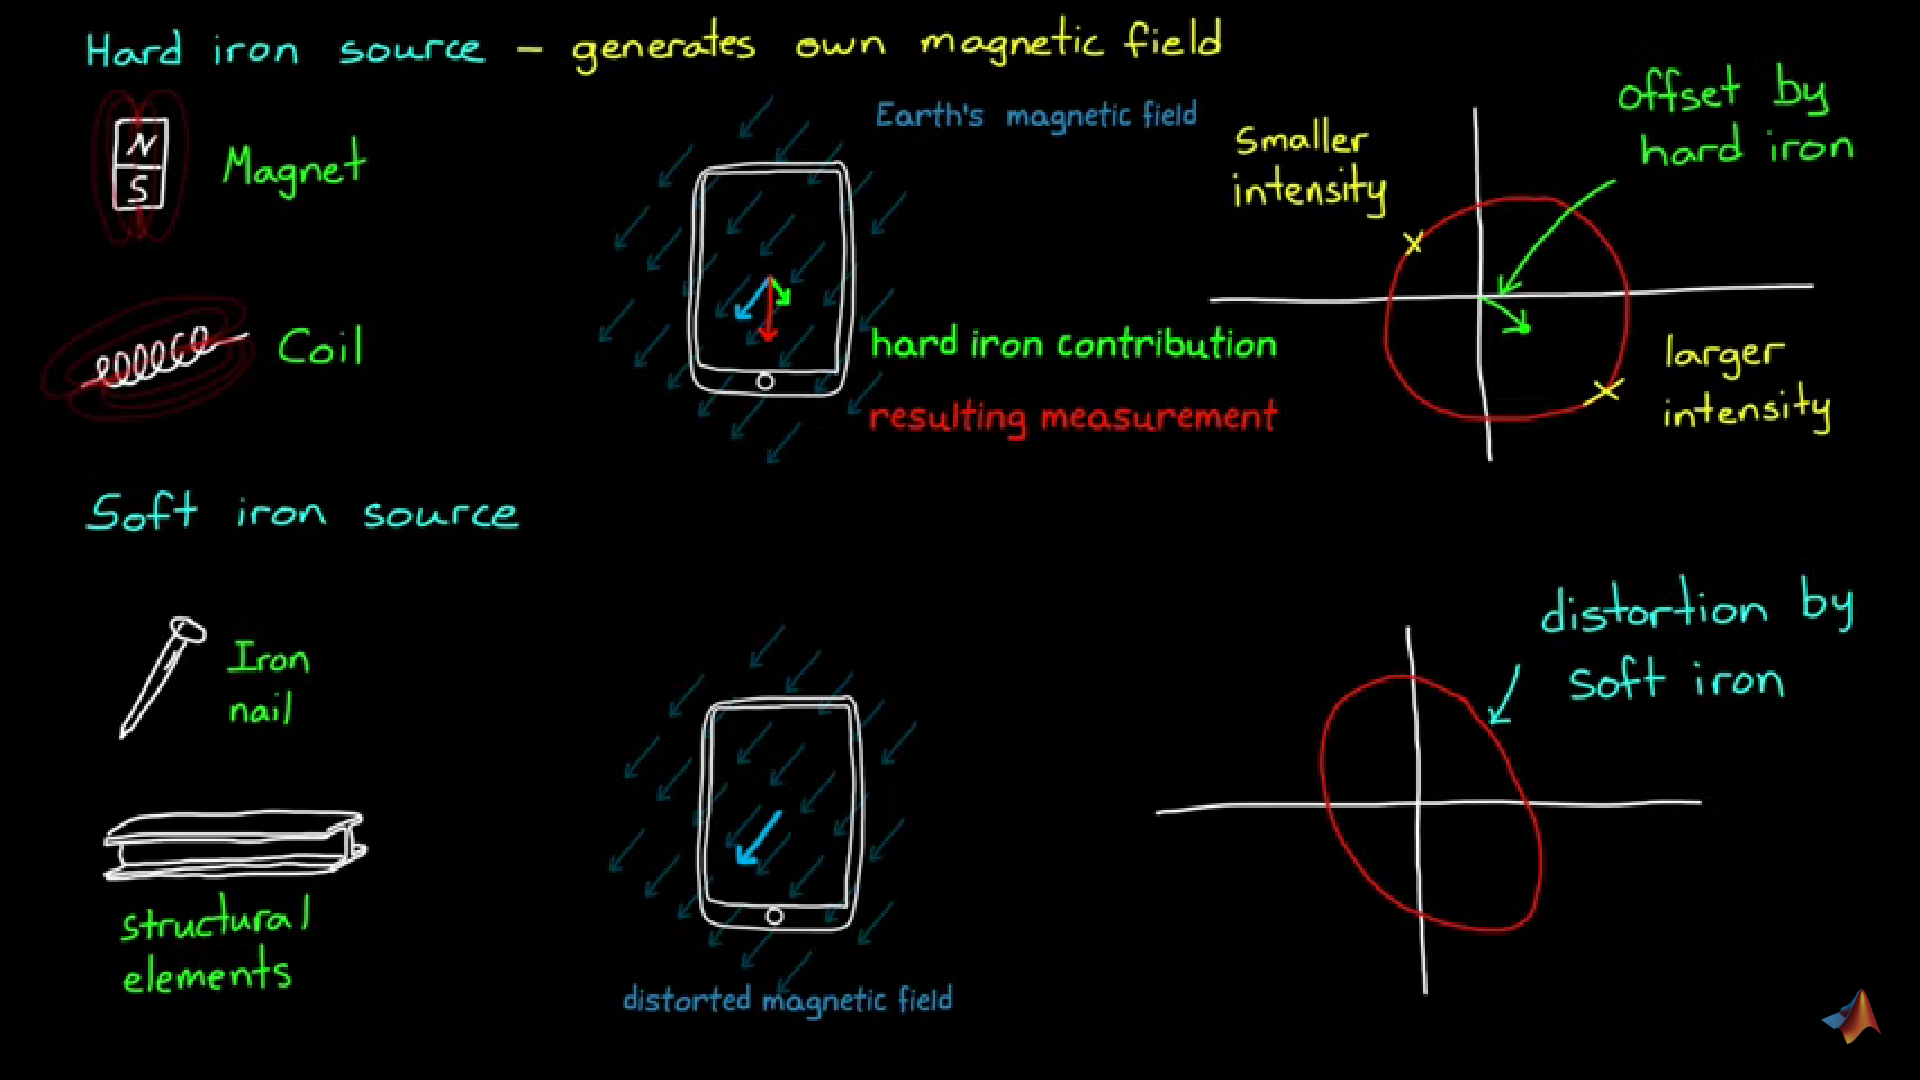 Hard iron source - generates own magnetic field
N
S
Magnet
Coil
Earth's magnetic field
hard iron contribution
resulting measurement
Smaller
intensity
offset by
hard iron
larger
intensity
Soft iron source
Iron
nail
structural
elements
distorted magnetic field
distortion by
soft iron